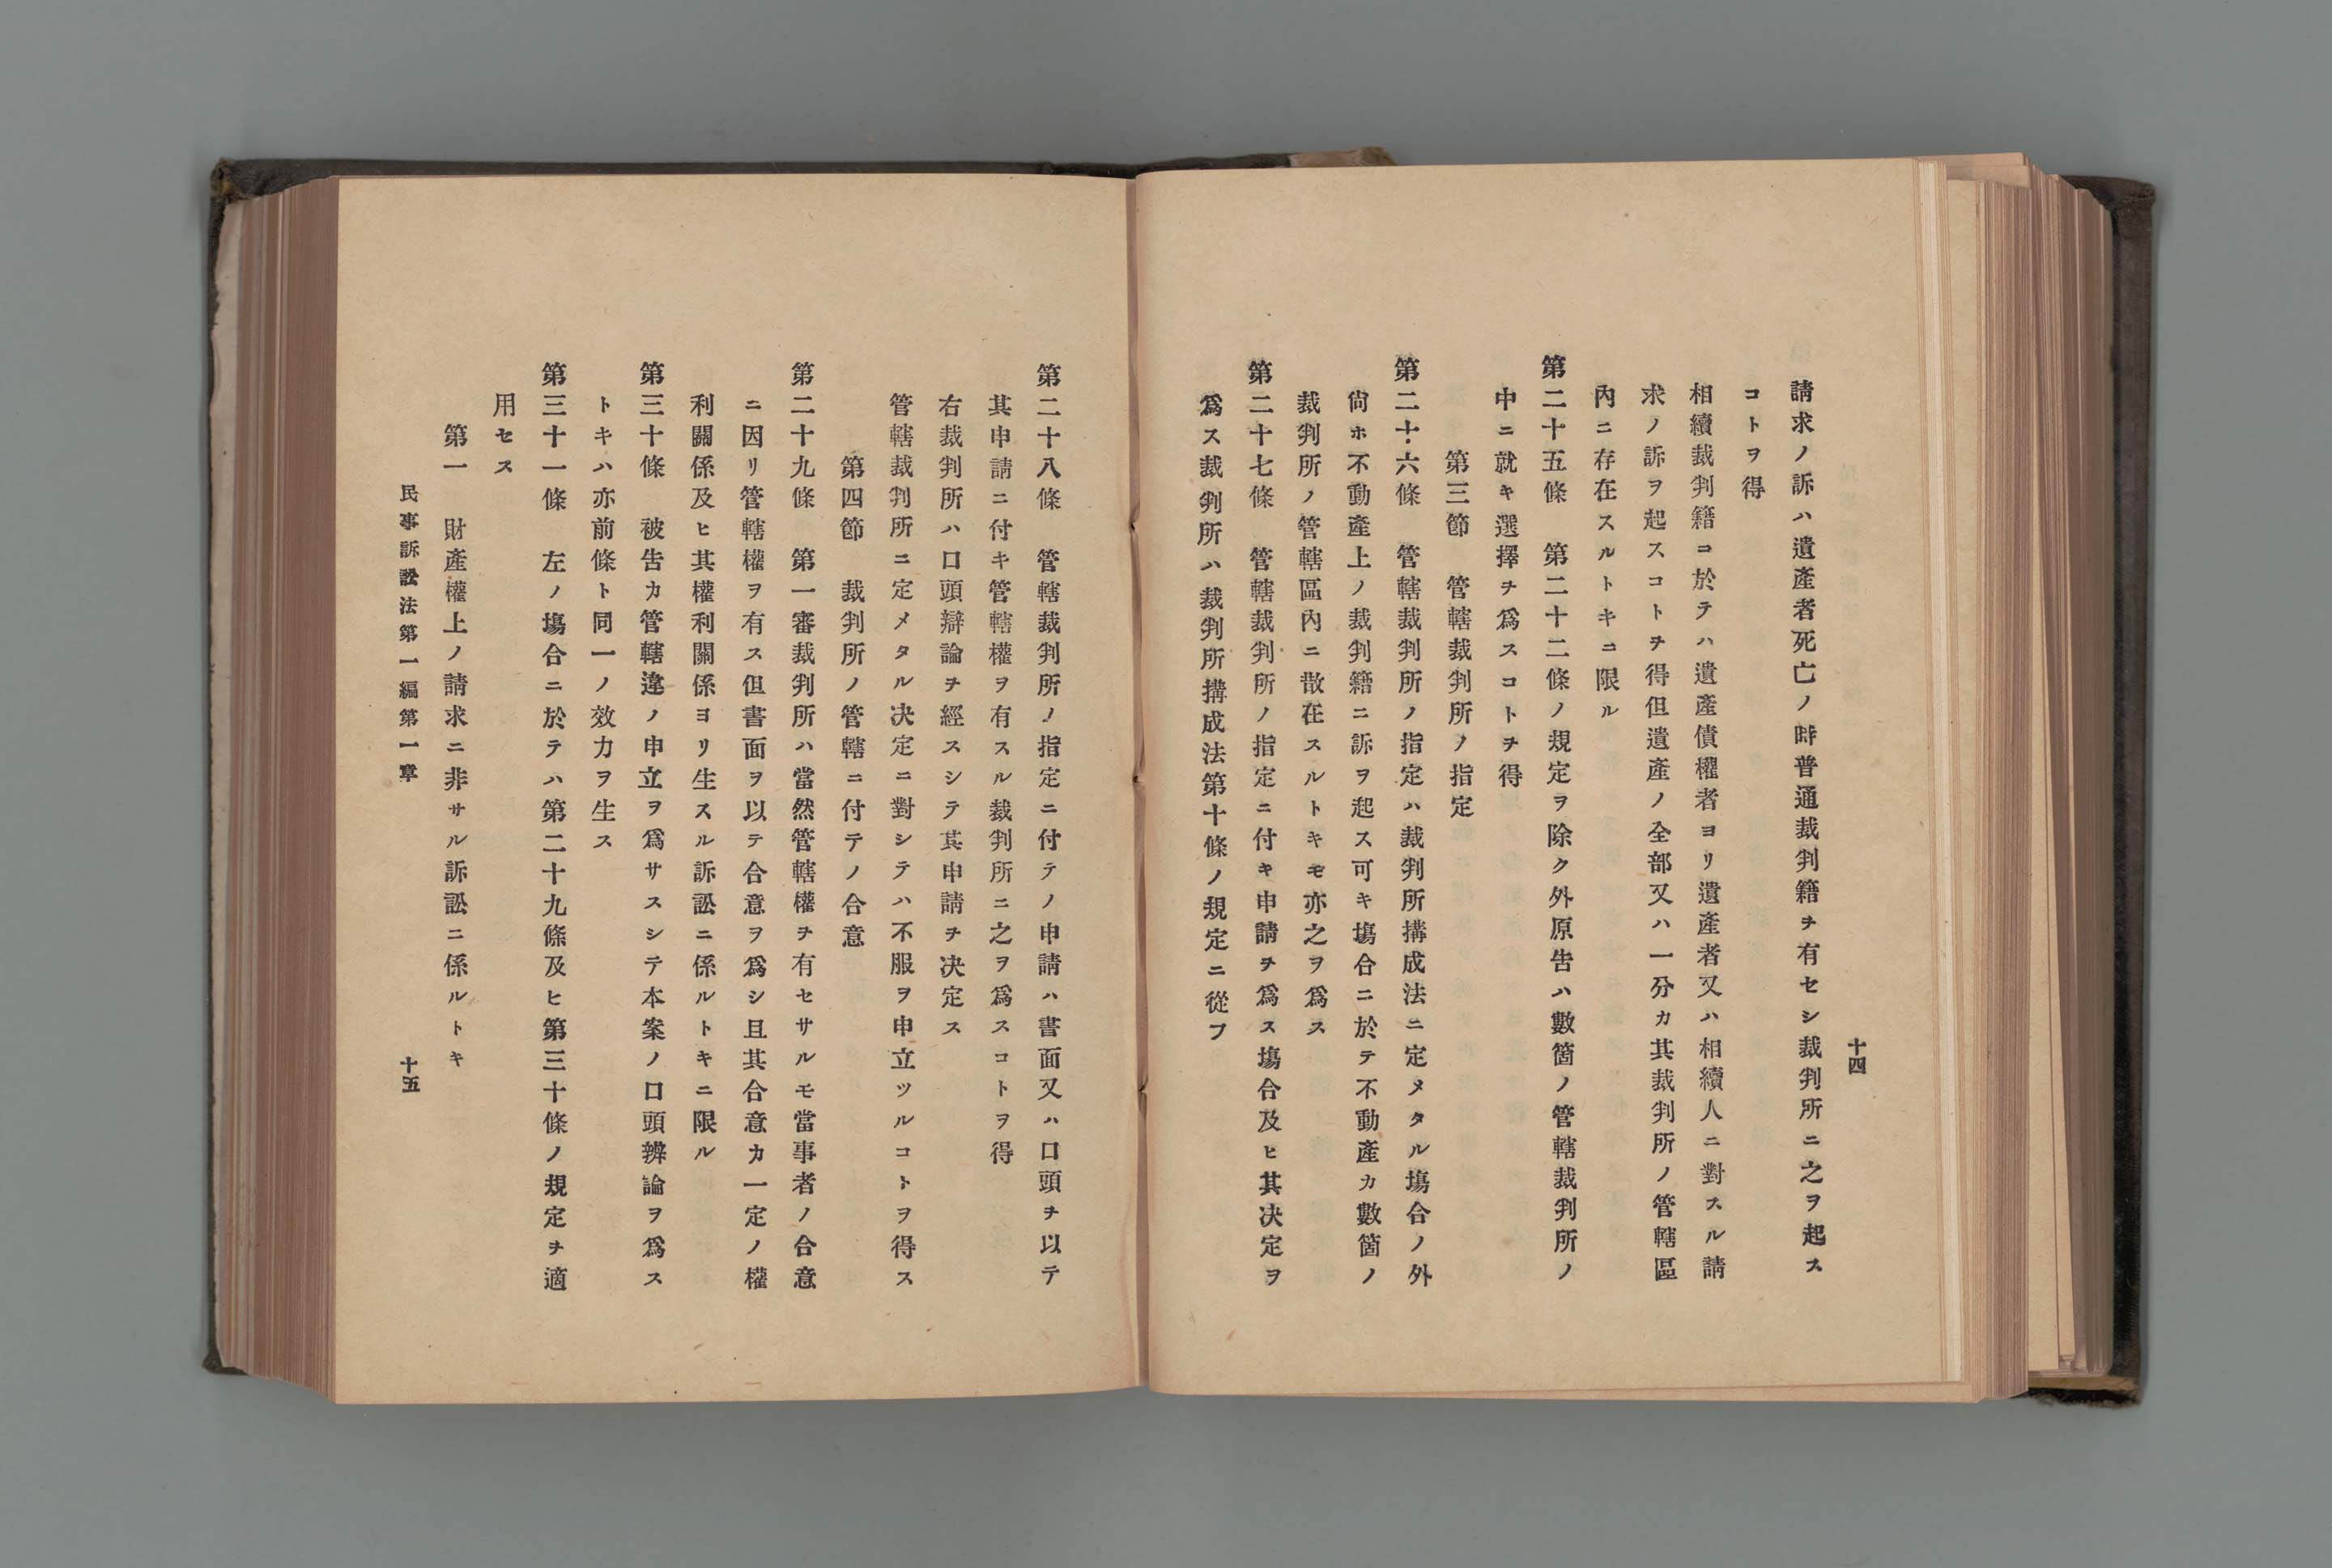 十四
請求ノ訴ハ遺產者死亡ノ時普通裁判籍チ有セシ裁判所ニ之ヲ起ス
コトヲ得
相續裁判籍コ於テハ遺產債權者ヨリ遺產者又ハ相續人ニ對スル請
求ノ訴ヲ起スコトチ得但遺產ノ全部又ハ一分カ其裁判所ノ管轄區
內ニ存在スルトキニ限ル
第二十五條　第二十二條ノ規定ヲ除ク外原告ハ數箇ノ管轄裁判所ノ
中ニ就キ選擇チ爲スコトチ得
第三節　管轄裁判所ノ指定
第二十六條　管轄裁判所ノ指定ハ裁判所搆成法ニ定メタル塲合ノ外
尙ホ不動產上ノ裁判籍ニ訴ヲ起ス可キ塲合ニ於テ不動產カ數箇ノ
裁判所ノ管轄區內ニ散在スルトキモ亦之ヲ爲ス
第二十七條　管轄裁判所ノ指定ニ付キ申請チ爲ス塲合及ヒ其决定ヲ
爲ス裁判所ハ裁判所搆成法第十條ノ規定ニ從フ
第二十八條　管轄裁判所ノ指定ニ付テノ申請ハ書面又ハ口頭チ以テ
其申請ニ付キ管轄權ヲ有スル裁判所ニ之ヲ爲スコトヲ得
右裁判所ハ口頭辯論チ經スシテ其申請チ决定ス
管轄裁判所ニ定メタル决定ニ對シテハ不服ヲ申立ツルコトヲ得ス
第四節　裁判所ノ管轄ニ付テノ合意
第二十九條　第一審裁判所ハ當然管轄權チ有セサルモ當事者ノ合意
ニ因リ管轄權ヲ有ス但書面ヲ以テ合意ヲ爲シ且其合意カ一定ノ權
利關係及ヒ其權利關係ヨリ生スル訴訟ニ係ルトキニ限ル
第三十條　被告カ管轄違ノ申立ヲ爲サスシテ本案ノ口頭辨論ヲ爲ス
トキハ亦前條ト同一ノ效力ヲ生ス
第三十一條　左ノ塲合ニ於テハ第二十九條及ヒ第三十條ノ規定チ適
用セス
第一　財產權上ノ請求ニ非サル訴訟ニ係ルトキ
民事訴訟法第一編第一章　十五